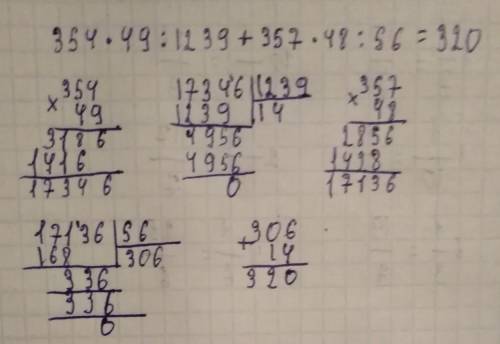 354 · 49 : 1239 + 357 · 48 : 56 = 320
× 354
49
3186
1416
17346
17346 | 1239
1239 | 14
4956
4956
0
× 357
48
2856
1428
17136
17136 | 56
168 | 306
336
336
0
+ 306
14
320